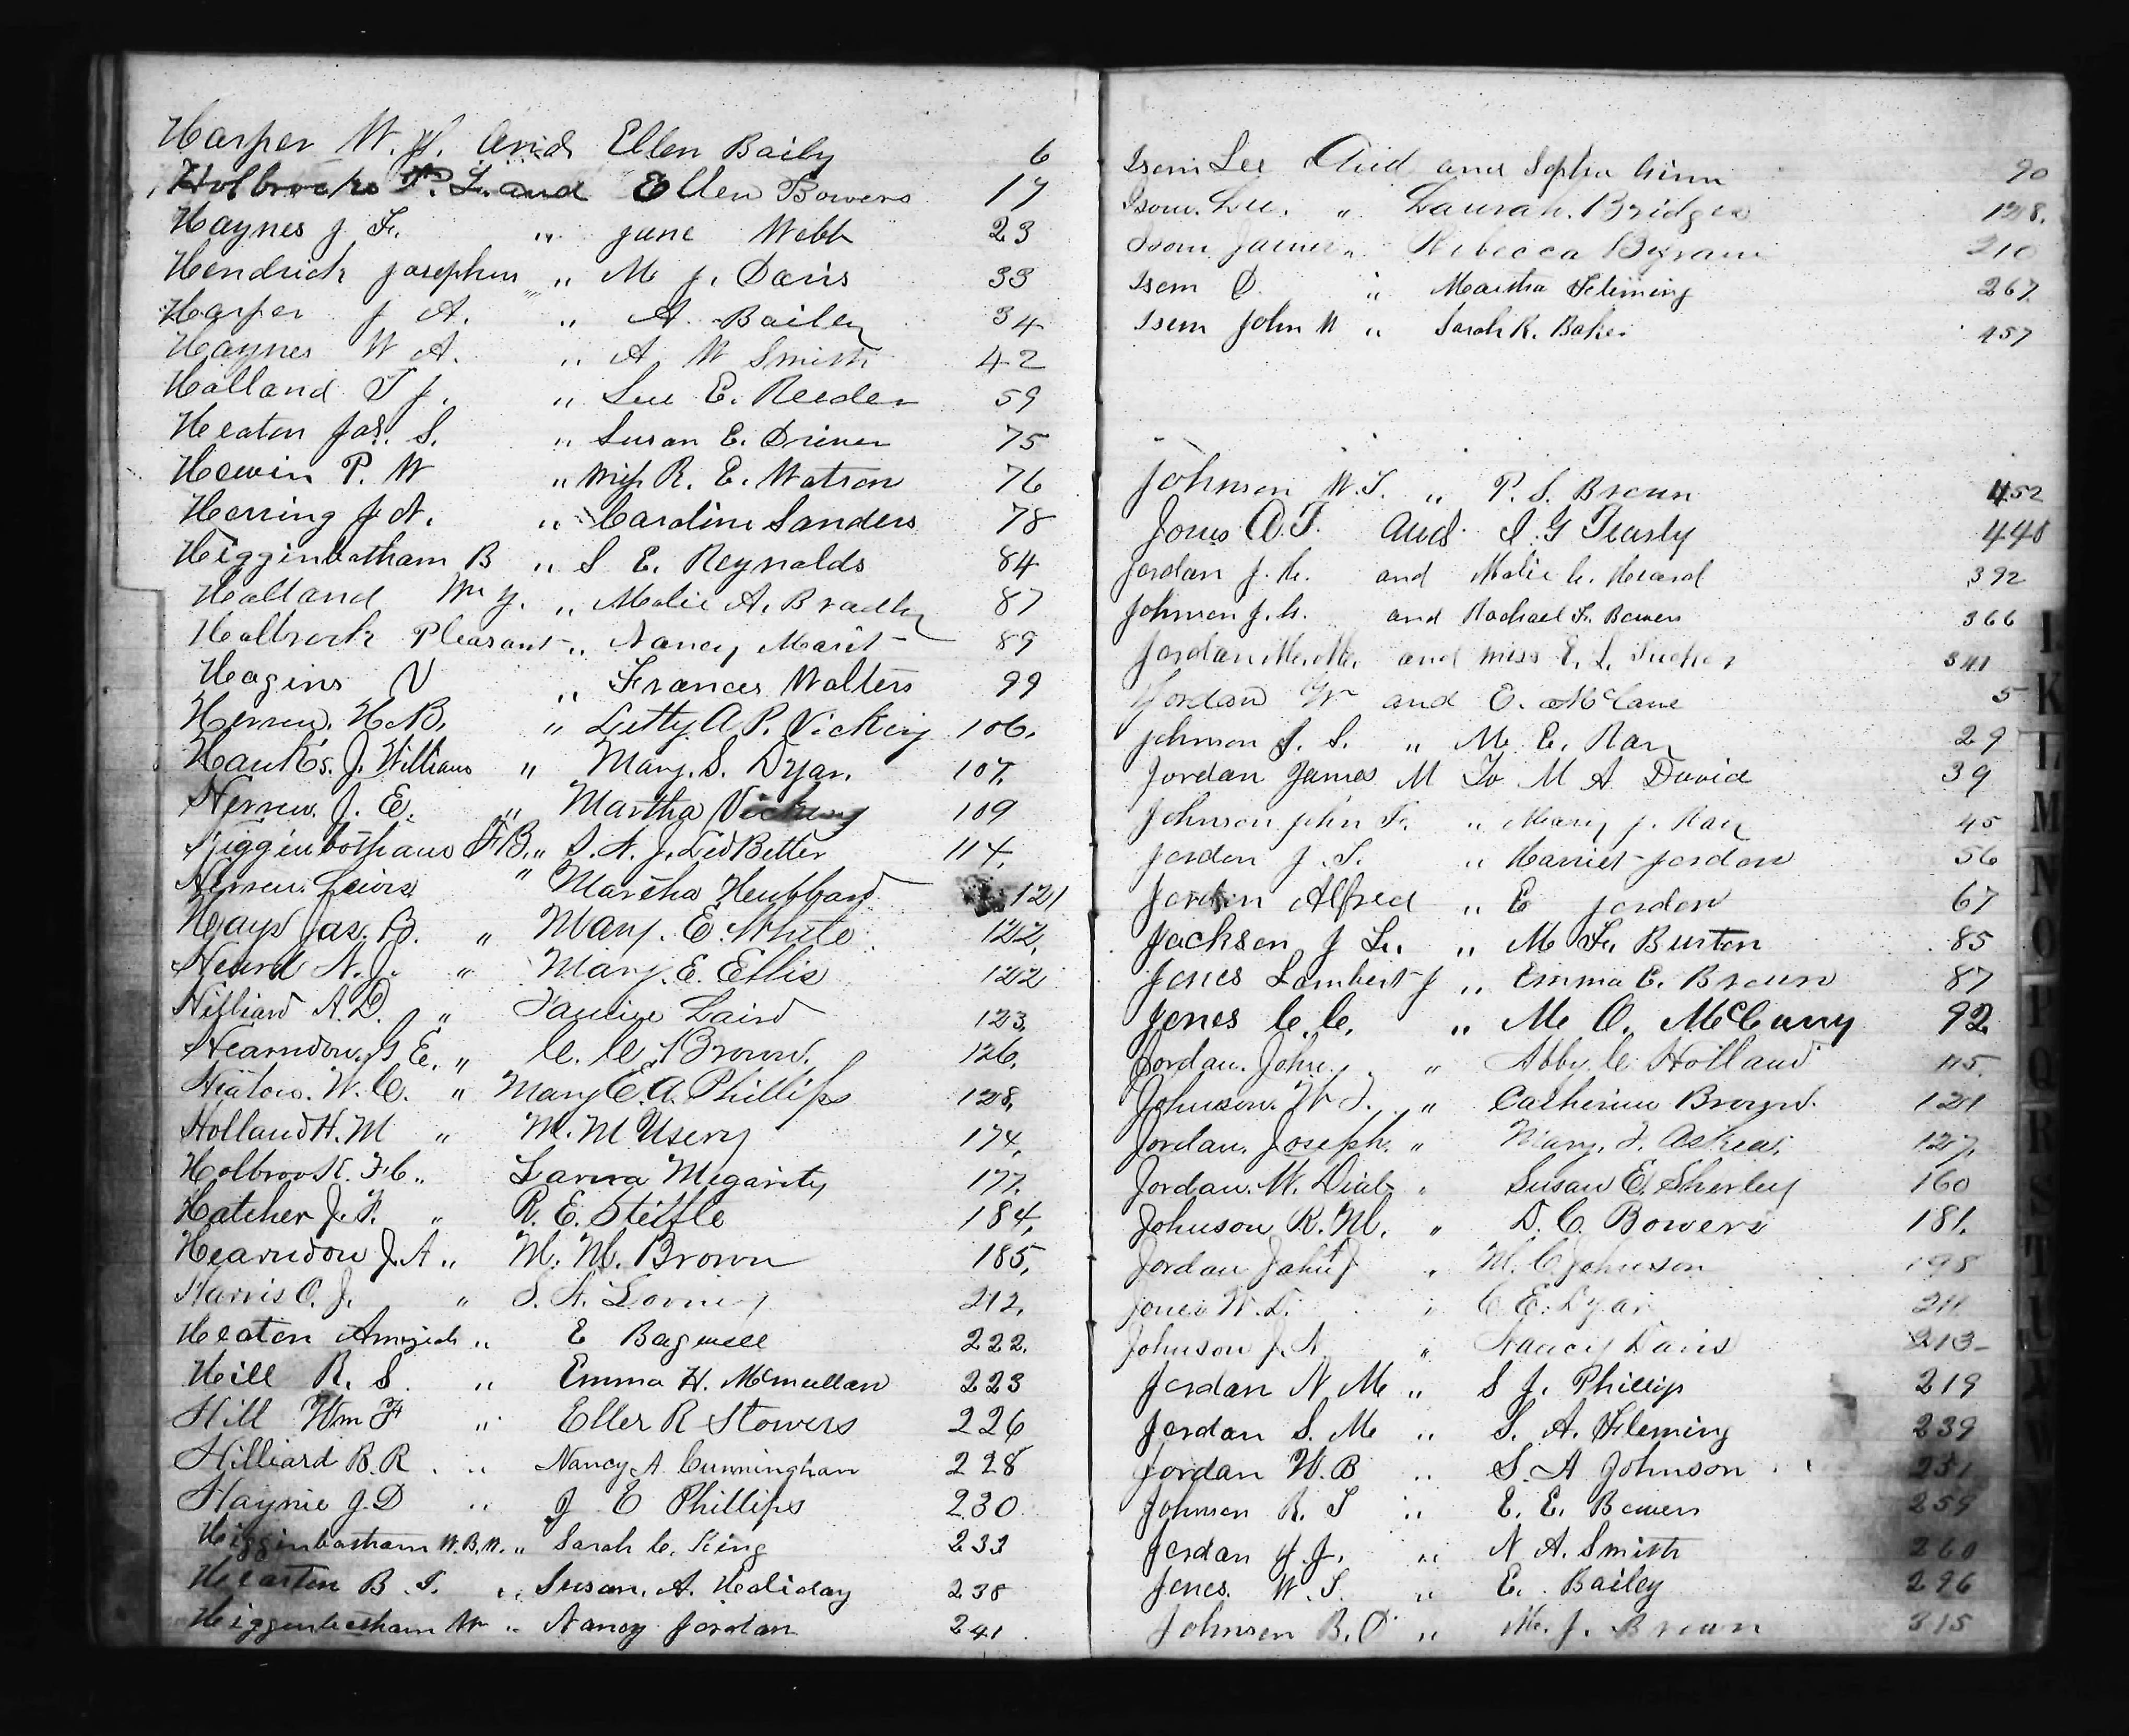 Harper W. H. and Ellen Baily 6
Holbrooks T. L. and Ellen Bowers 17
Haynes J. F. " Jane Webb 23
Hendrick Josephus " M J. Davis 33
Harper J A. " A. Bailey 34
Haynes W A. " A W Smith 42
Holland T J. " Sue E. Reeder 59
Heaton Jas. S. " Susan E. Driver 75
Hewin P. W " Miss R. E. Watson 76
Herring J. N. " Caroline Sanders 78
Higginbotham B " S E. Reynolds 84
Holland Wm Y. " Molie A. Bradley 87
Holbrook Pleasant " Nancy Marit 89
Hagins N " Frances Walters 99
Herren. H. B. " Letty A P. Vickery 106.
Hanks. J. Williams " Mary. S. Dyar. 107.
Herren. J. E. " Martha Vickery 109
Higginbothams F B. " S. A. J. LedBetter 114.
Herren. Lewis " Martha Hubbard 121
Hays Jas. B. " Mary. E. White 122.
Heard N. J. " Mary. E. Ellis 122
Hilliard A. D. " Laird 123.
Hearndon. G E. " C. C. Brown. 126.
Heaton. W. C. " Mary E. A. Phillips 128.
Holland H. M " M. M Usery 174.
Holbrook. F. C. " Larra Megarity 177.
Hatcher J. P. " R. E. Steifle 184.
Hearndon J. A " M. M. Brown 185.
Harris O. J. " S. A. 212.
Heaton Amaziah " E Bagwell 222.
Hill R. S. " Emma H. Mcmullan 223
Hill Wm F " Eller R Stowers 226
Hilliard B. R. " Nancy A Cunningham 228
Haynie J. D " J E Phillips 230
Higginbotham W. B. W. " Sarah C. King 233
Hearton B. T. " Susan. A. Holiday 238
Higgenbotham Wm " Nancy Jordan 241
Isom Lee And and Ginn 90
Isom. Lee. " Laurah. Bridges 128.
Isom James " Rebecca Byram 210
Isom D. " Martha Fleming 267
Isom John W " Sarah R. Baker 457
Johnson W. T. " P. S. Brown 452
Jones A. T. And I. G Teasly 448
Jordan J. H. and Molie C. Heard 392
Johnson J. H. and Rachael F. Bowers 366
Jordan and Miss E. L. Tucker 341
Jordan Wm and E. McLane 5
Johnson J. S. " M E. Ray 29
Jordan James M To M A David 39
Johnson John F. " Mary J. Ray 45
Jordon J. T. " Harriet Jordon 56
Jordon Alfred " E Jordon 67
Jackson J L. " M F. Burton 85
Jones Lambert J " Emma E. Brown 87
Jones C. C. " M O. McCurry 92.
Jordan. John. " Abby C Holland 115.
Johnson. W T. " Catherine Brown. 121
Jordan. Joseph. " Mary. F. Askea. 127.
Jordan. W. Dial " Susan E. Sherley 160
Johnson R. M. " D. C. Bowers 181.
Jordan John J " M. C Johnson 198
Jones W. D. " C. E. Dyar 211.
Johnson J. N. " Nancy Davis 213
Jordan N M " S J. Phillips 219
Jordan S. M " S. A. Fleming 239
Jordan W. B " S. A Johnson 251
Johnson R. T " E. E. Bowers 259
Jordan J. J. " N A. Smith 260
Jones. W. T. " E. Bailey 296
Johnson B. O " M. J. Brown 315
I
K
L
M
N
O
P
Q
R
S
T
U
W